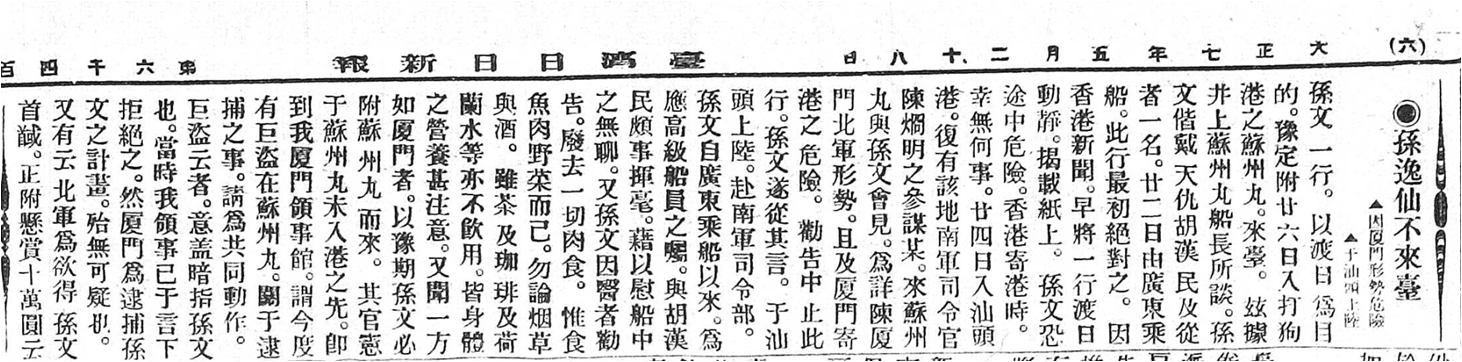 (六)
大正七年五月二十八日
臺灣日日新報
第六千四百
◉孫逸仙不來臺
▲因厦門形勢危險
▲于汕頭上陸
孫文一行。以渡日為目
的。豫定附廿六日入打狗
港之蘇州丸。來臺。玆據
井上蘇州丸船長所談。孫
文偕戴天仇胡漢民及從
者一名。廿二日由廣東乘
船。此行最初絕對之。因
香港新聞。早將一行渡日
動靜。揭載紙上。孫文恐
途中危險。香港寄港時。
幸無何事。廿四日入汕頭
港。復有該地南軍司令官
陳烱明之參謀某。來蘇州
丸與孫文會見。為詳陳厦
門北軍形勢。且及厦門寄
港之危險。勸告中止此
行。孫文遂從其言。于汕
頭上陸。赴南軍司令部。
孫文自廣東乘船以來。為
應高級船員之囑。與胡漢
民頗事揮毫。藉以慰船中
之無聊。又孫文因醫者勸
告。廢去一切肉食。惟食
魚肉野菜而已。勿論烟草
與酒。雖茶及珈琲及荷
蘭水等亦不飲用。皆身體
之營養甚注意。又聞一方
如厦門者。以豫期孫文必
附蘇州丸而來。其官憲
于蘇州丸未入港之先。卽
到我厦門領事館。謂今度
有巨盜在蘇州丸。關于逮
捕之事。請為共同動作。
巨盜云者。意盖暗指孫文
也。當時我領事已于言下
拒絕之。然厦門為逮捕孫
文之計畫。殆無可疑也。
又有云北軍為欲得孫文
首馘。正附懸賞十萬圓云